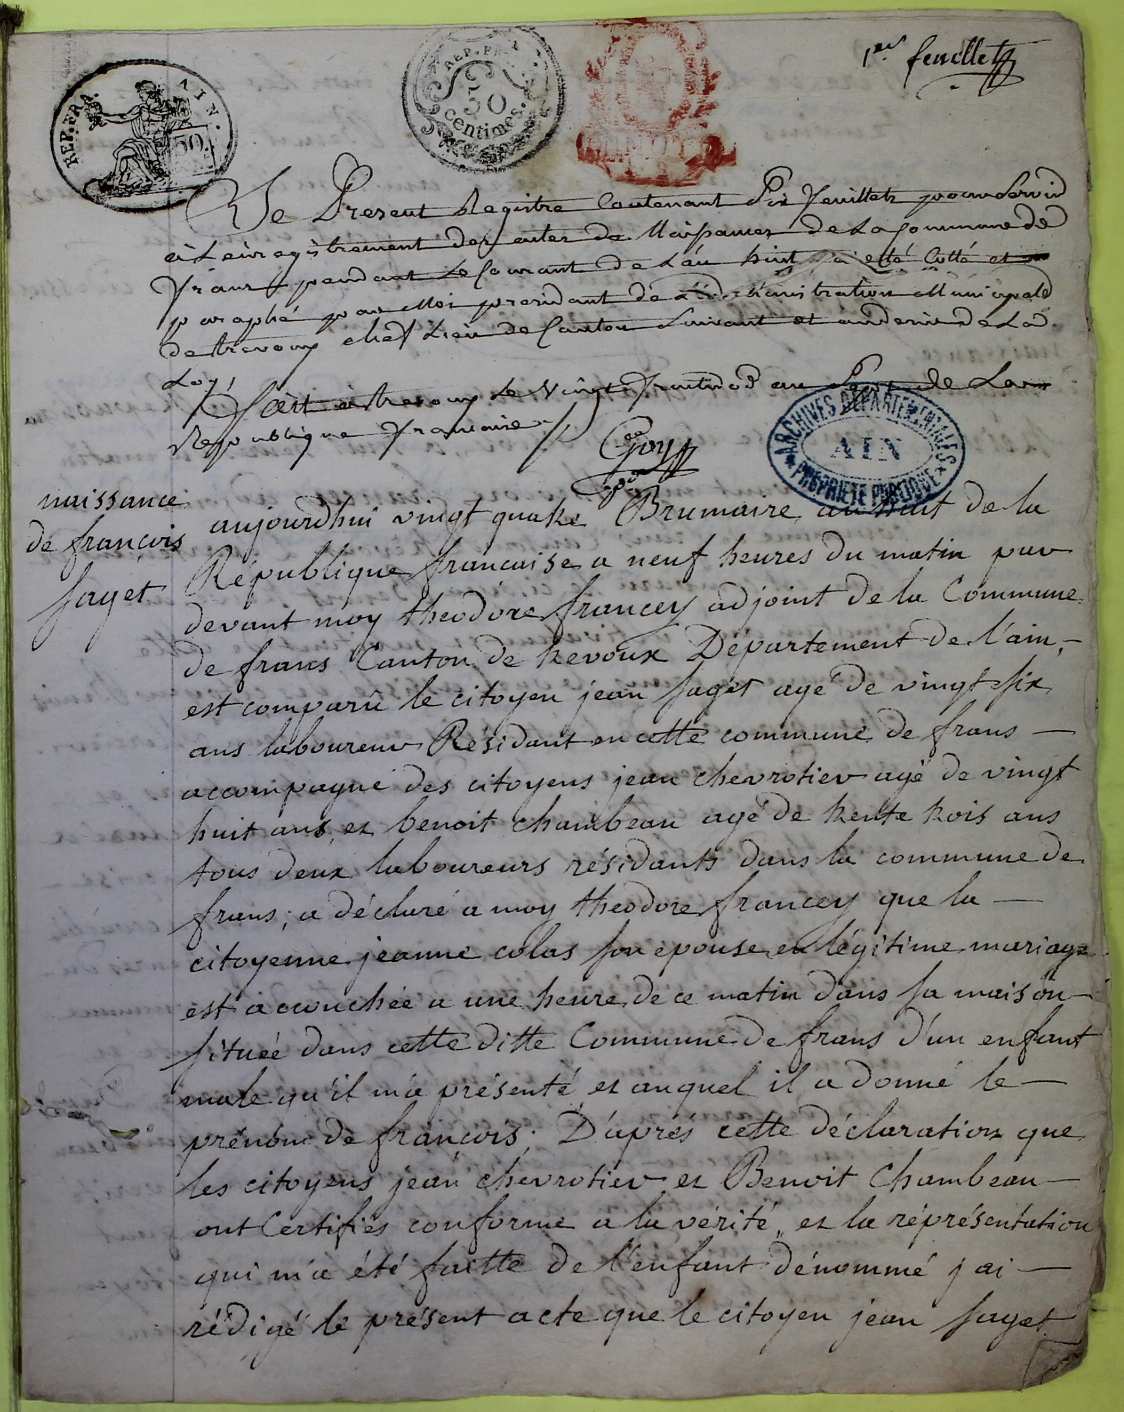 1er feuillet
REP. FRA. AIN. 50.
REP. FRA.
50
centimes.
Le Present Registre Contenant Six feuillets pour Servir
à Lenregistrement des actes de Naissances de La Commune de
frans pendant Le Courant de L'an huit a esté Cotté et
paraphé par Moi president de L'administration Municipale
de trevoux chef Lieu de Canton Suivant et au desir de La
Loy,
fait à trevoux Le vingt fructidor an Sept de La
Republique francaise
Goy
ARCHIVES DÉPARTEMENTALES
AIN
PROPRIÉTÉ PUBLIQUE
naissance
de françois
saget
aujourdhui vingt quatre Brumaire an huit de la
République francaise a neuf heures du matin par
devant moy theodore francey adjoint de la Commune
de frans Canton de trevoux Département de l'ain,
est comparû le citoyen jean saget agé de vingt six
ans laboureur Résidant en cette commune de frans
accompagné des citoyens jean chevrotier agé de vingt
huit ans, et benoit chambeau agé de trente trois ans
tous deux laboureurs résidants dans la commune de
frans; a déclaré a moy theodore francey que la
citoyenne jeanne colas son epouse en légitime mariage
est accouchée a une heure de ce matin dans sa maison
située dans cette ditte Commune de frans d'un enfant
male qu'il m'a présenté et auquel il a donné le
prénom de françois; D'aprés cette déclaration que
les citoyens jean chevrotier et Benoit Chambeau
ont Certifiés conforme a la vérité, et la réprésentation
qui m'a été faitte de l'enfant dénommé j'ai
rédigé le présent acte que le citoyen jean saget